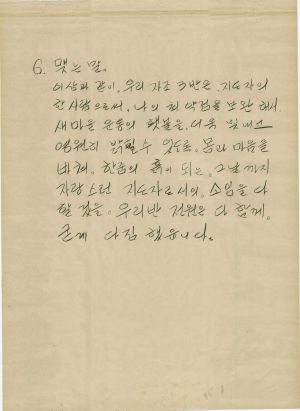 6. 맺는 말.
이상과 같이, 우리 자조 3반은, 지도자의
한사람으로써, 나의 취약점을 보완 해서
새마을 운동의 횃불을, 더욱 빛내고
영원히 밝힐수 있도록, 몸과 마음을
바쳐, 한줌의 흙이 되는, 그날 까지
자랑 스런 지도자로서의, 소임을 다
할 것을, 우리반 전원은 다 함께,
굳게 다짐 했읍니다.